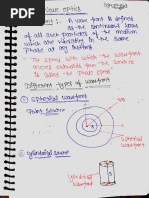 Wave optics
A wave front is defined
as the continuous locus
of all such particles of the medium
which are vibrating in the same
phase at any instant
The speed with which the wavefront
moves outwards from the source
is called the phase speed
Different types of wavefront
① Spherical wavefront
Point source
S
Spherical
wavefront
② Cylindrical source
Cylindrical
wavefront